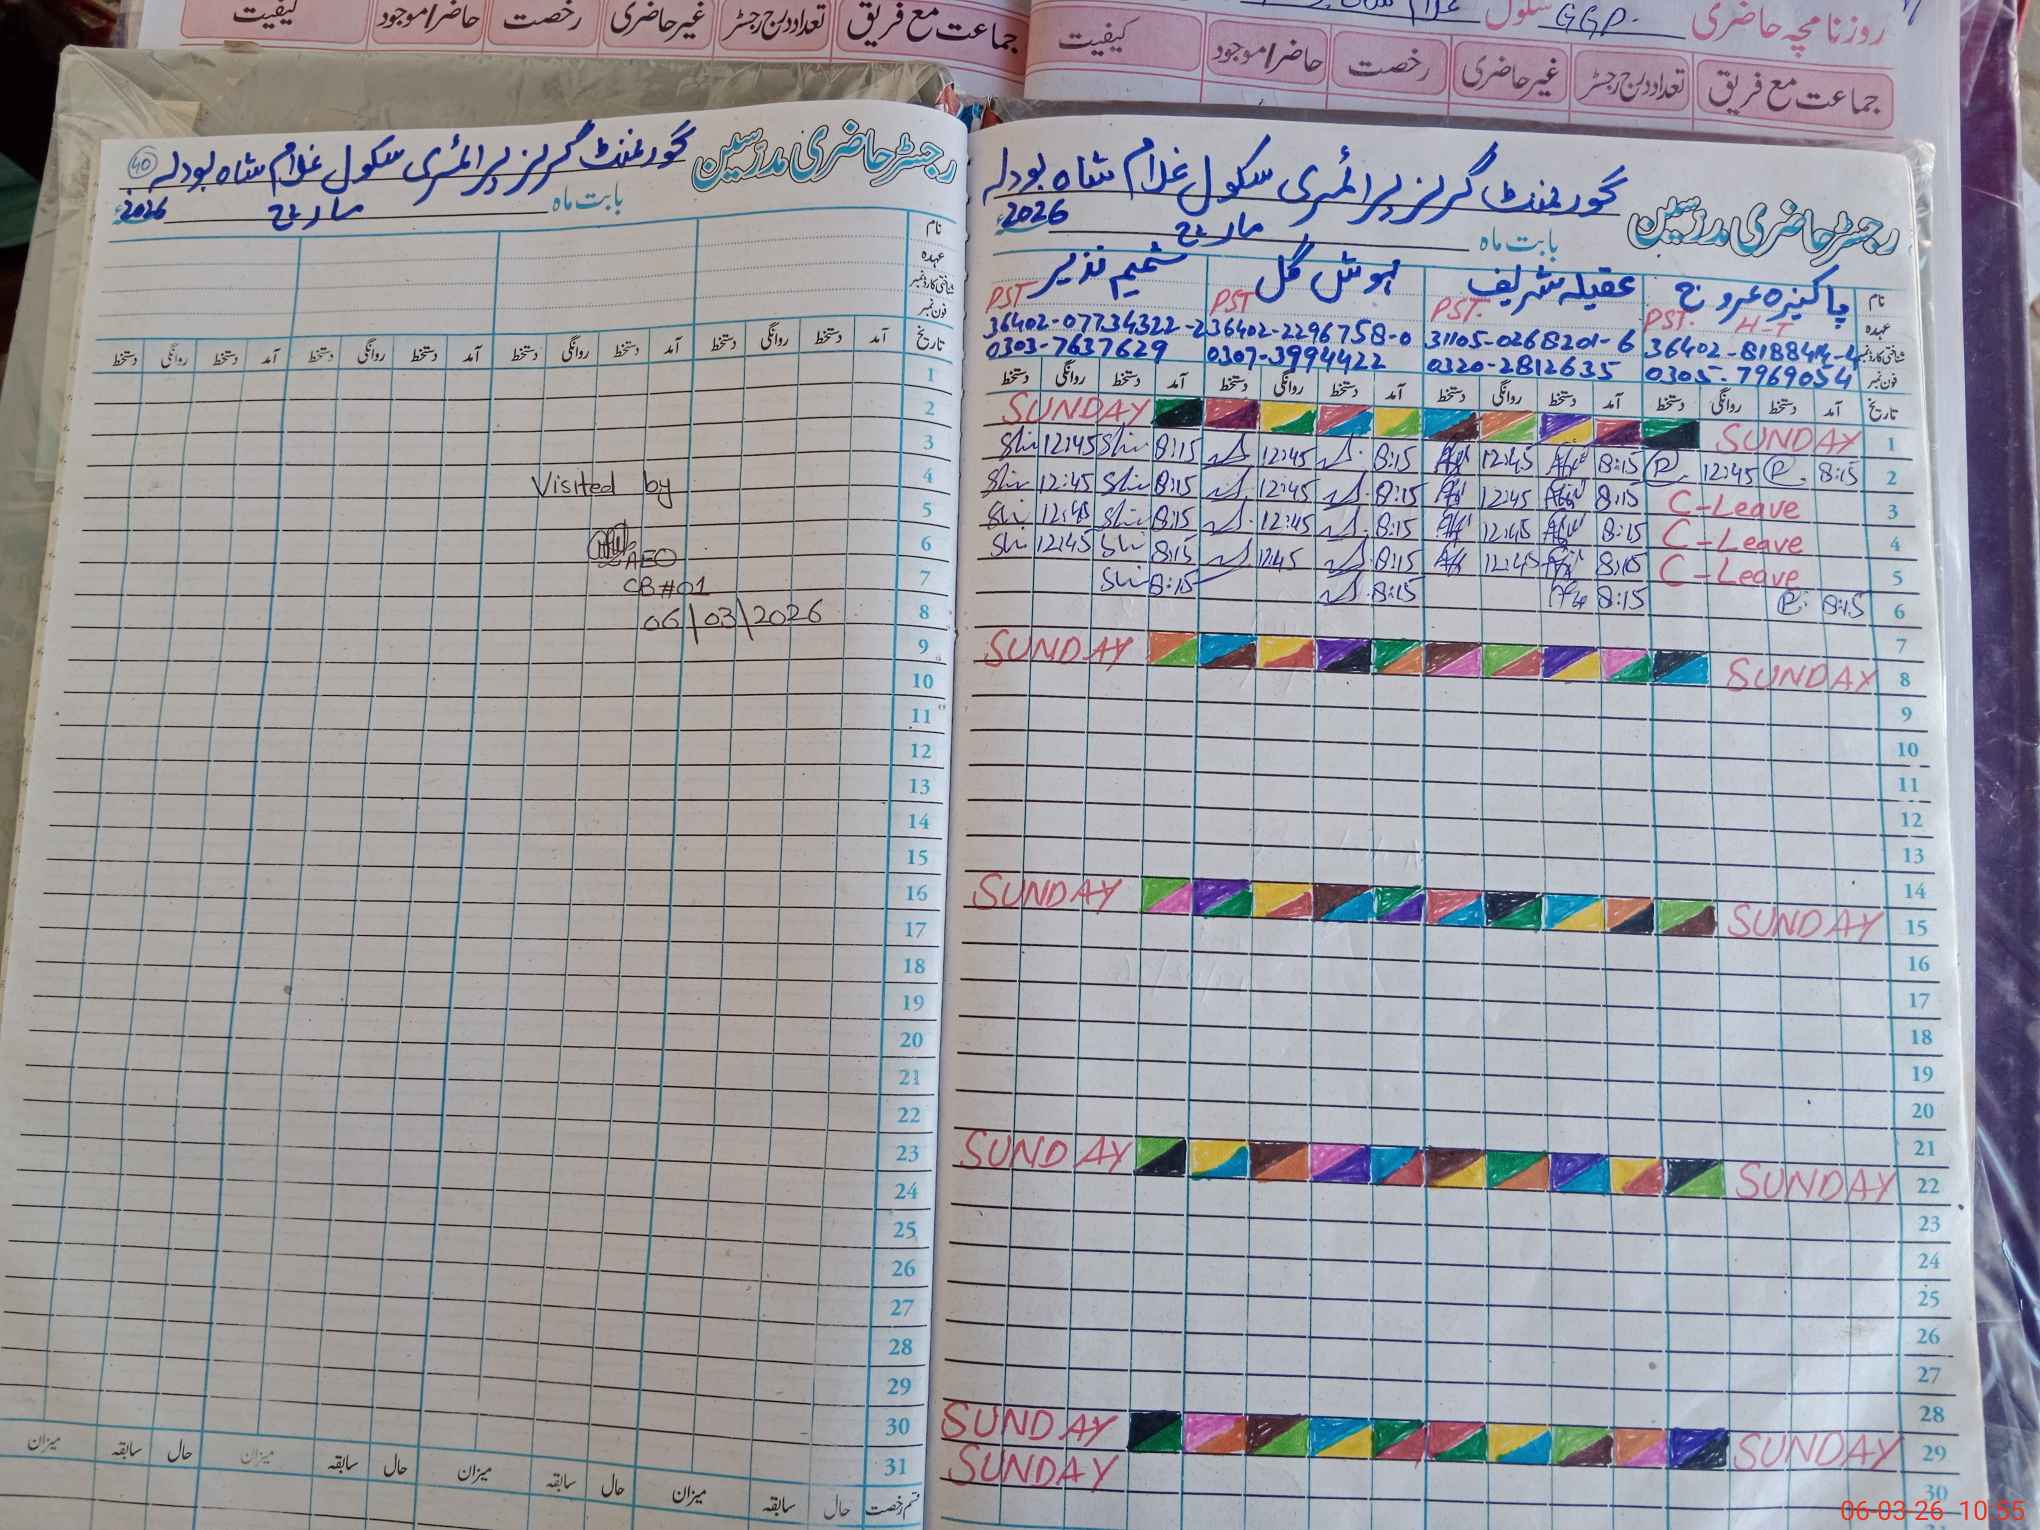 جماعت مع فریق تعداد درج رجسٹر غیر حاضری رخصت حاضر/موجود کیفیت
روزنامچہ حاضری سکول GGP.
جماعت مع فریق تعداد درج رجسٹر غیر حاضری رخصت حاضر/موجود کیفیت
رجسٹر حاضری مدرسین گورنمنٹ گرلز پرائمری سکول غلام شاہ بودلہ
بابت ماہ مارچ 2026ء
نام پاکیزہ عروج عقیلہ شریف ہوش گل شمیم نذیر
عہدہ PST. H-T PST. PST PST
شناختی کارڈ نمبر 31105-0268201-6 36402-2296758-0 36402-07734322-2
فون نمبر 0305-7969054 0320-2812635 0307-3994422 0303-7637629
تاریخ آمد دستخط روانگی دستخط آمد دستخط روانگی دستخط آمد دستخط روانگی دستخط آمد دستخط روانگی دستخط
1 SUNDAY SUNDAY
2 8:15 P. 12:45 P. 8:15 12:45 8:15 12:45 8:15 Shi 12:45 Shi
3 C-Leave 8:15 12:45 8:15 12:45 8:15 Shi 12:45 Shi
4 C-Leave 8:15 12:45 8:15 12:45 8:15 Shi 12:45 Shi
5 C-Leave 8:15 12:45 8:15 12:45 8:15 Shi 12:45 Shi
6 8:15 P. 8:15 8:15 8:15 Shi
7
8 SUNDAY SUNDAY
9
10
11
12
13
14
15 SUNDAY SUNDAY
16
17
18
19
20
21
22 SUNDAY SUNDAY
23
24
25
26
27
28
29 SUNDAY SUNDAY
30 SUNDAY
رجسٹر حاضری مدرسین گورنمنٹ گرلز پرائمری سکول غلام شاہ بودلہ 40
بابت ماہ مارچ 2026ء
نام
عہدہ
شناختی کارڈ نمبر
فون نمبر
تاریخ آمد دستخط روانگی دستخط آمد دستخط روانگی دستخط آمد دستخط روانگی دستخط آمد دستخط روانگی دستخط
1
2
3
4 Visited by
5
6 AEO
7 CB#01
8 06/03/2026
9
10
11
12
13
14
15
16
17
18
19
20
21
22
23
24
25
26
27
28
29
30
31
قسم رخصت حال سابقہ میزان حال سابقہ میزان حال سابقہ میزان حال سابقہ میزان
06-03-26 10:55